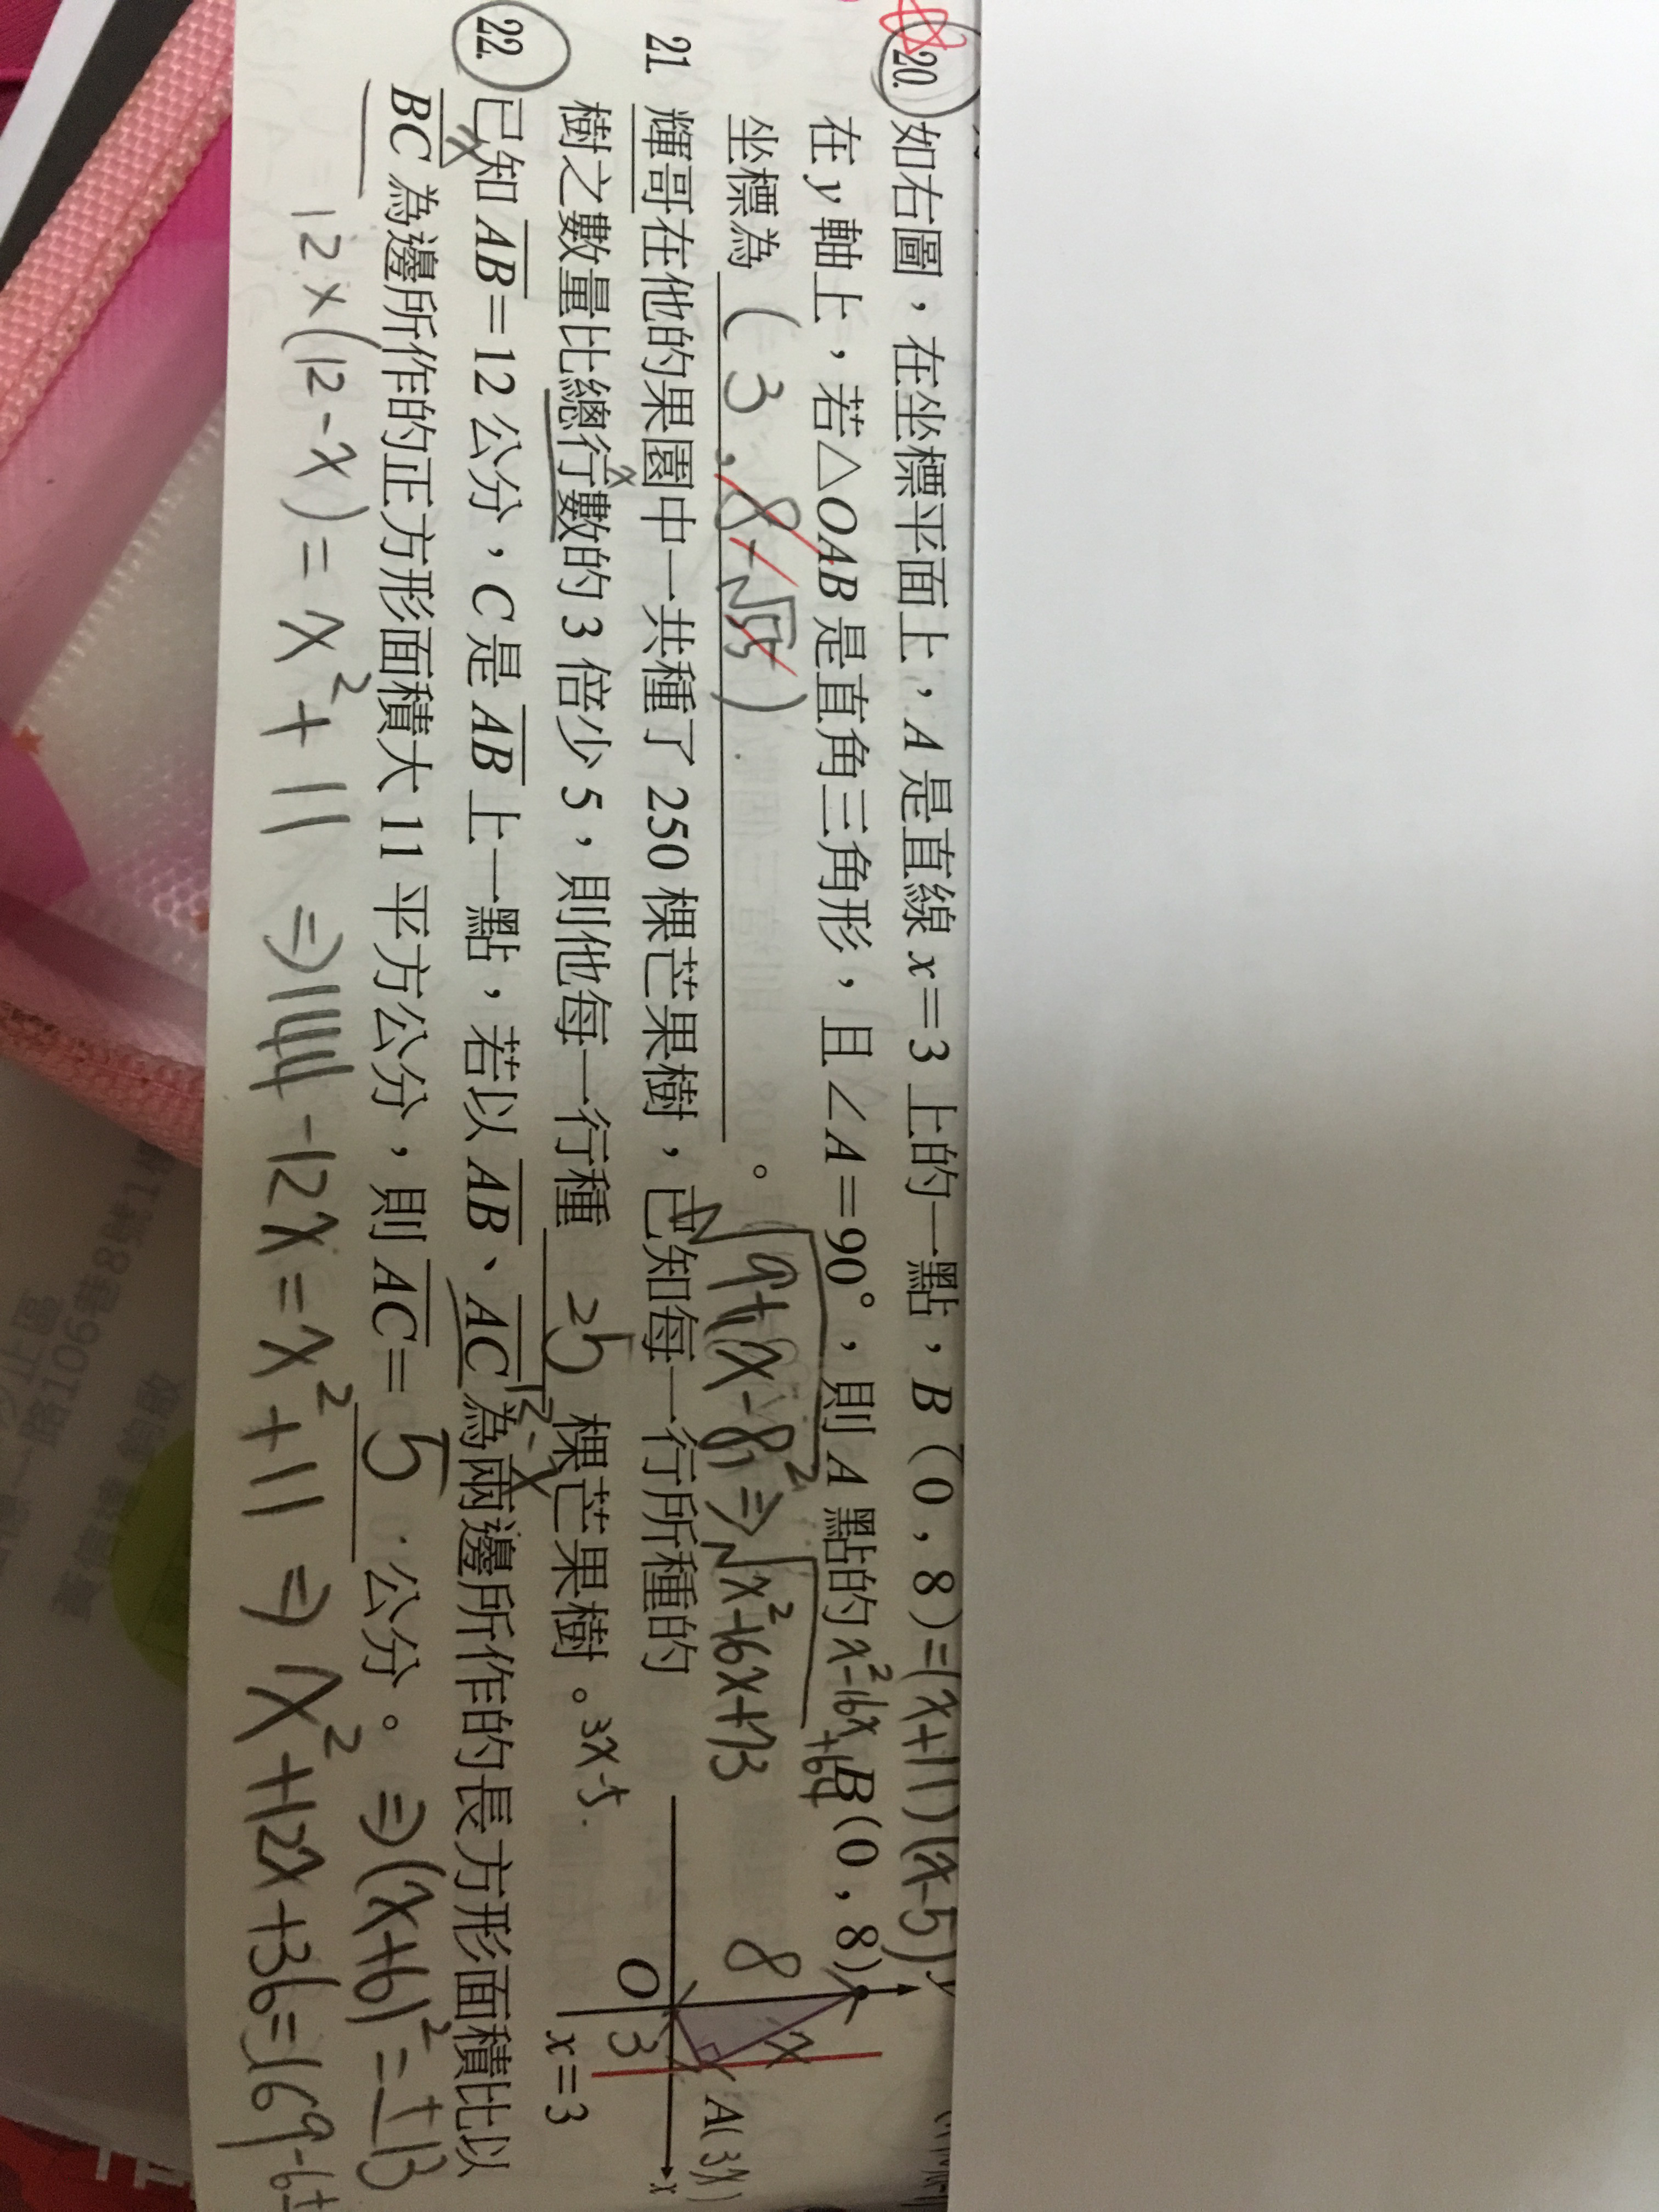 20. 如右圖，在坐標平面上，A 是直線 x＝3 上的一點，B（0，8） =(x+11)(x-5)
在 y 軸上，若△OAB 是直角三角形，且∠A＝90°，則 A 點的 x²-16x+64
坐標為 (3，8-√15)。
√9+(x-8)² ⇒ √x²-16x+73
21. 輝哥在他的果園中一共種了 250 棵芒果樹，已知每一行所種的
樹之數量比總行數的 3 倍少 5，則他每一行種 25 棵芒果樹。 3x-5
x
22. 已知 AB＝12 公分，C 是 AB 上一點，若以 AB、AC 為兩邊所作的長方形面積比以
x
12-x
BC 為邊所作的正方形面積大 11 平方公分，則 AC＝ 5 公分。 ⇒(x+6)²=±13
12×(12-x)=x²+11 ⇒144-12x=x²+11 ⇒ x²+12x+36=169
B(0，8)
y
8
x
O
3
A(3,x)
x
x＝3